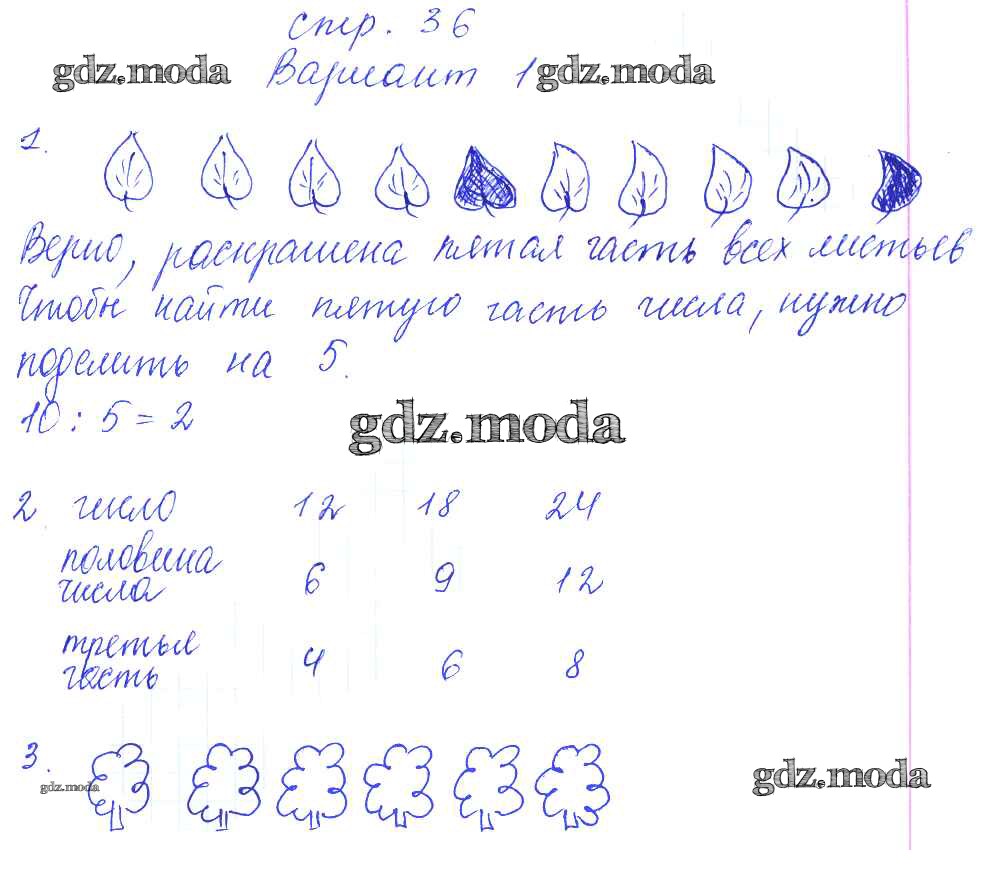 стр. 36
gdz.moda Вариант 1 gdz.moda
1.
Верно, раскрашена пятая часть всех листьев
Чтобы найти пятую часть числа, нужно
поделить на 5.
10 : 5 = 2
gdz.moda
2 число 12 18 24
половина
числа 6 9 12
третья
часть 4 6 8
3.
gdz.moda
gdz.moda